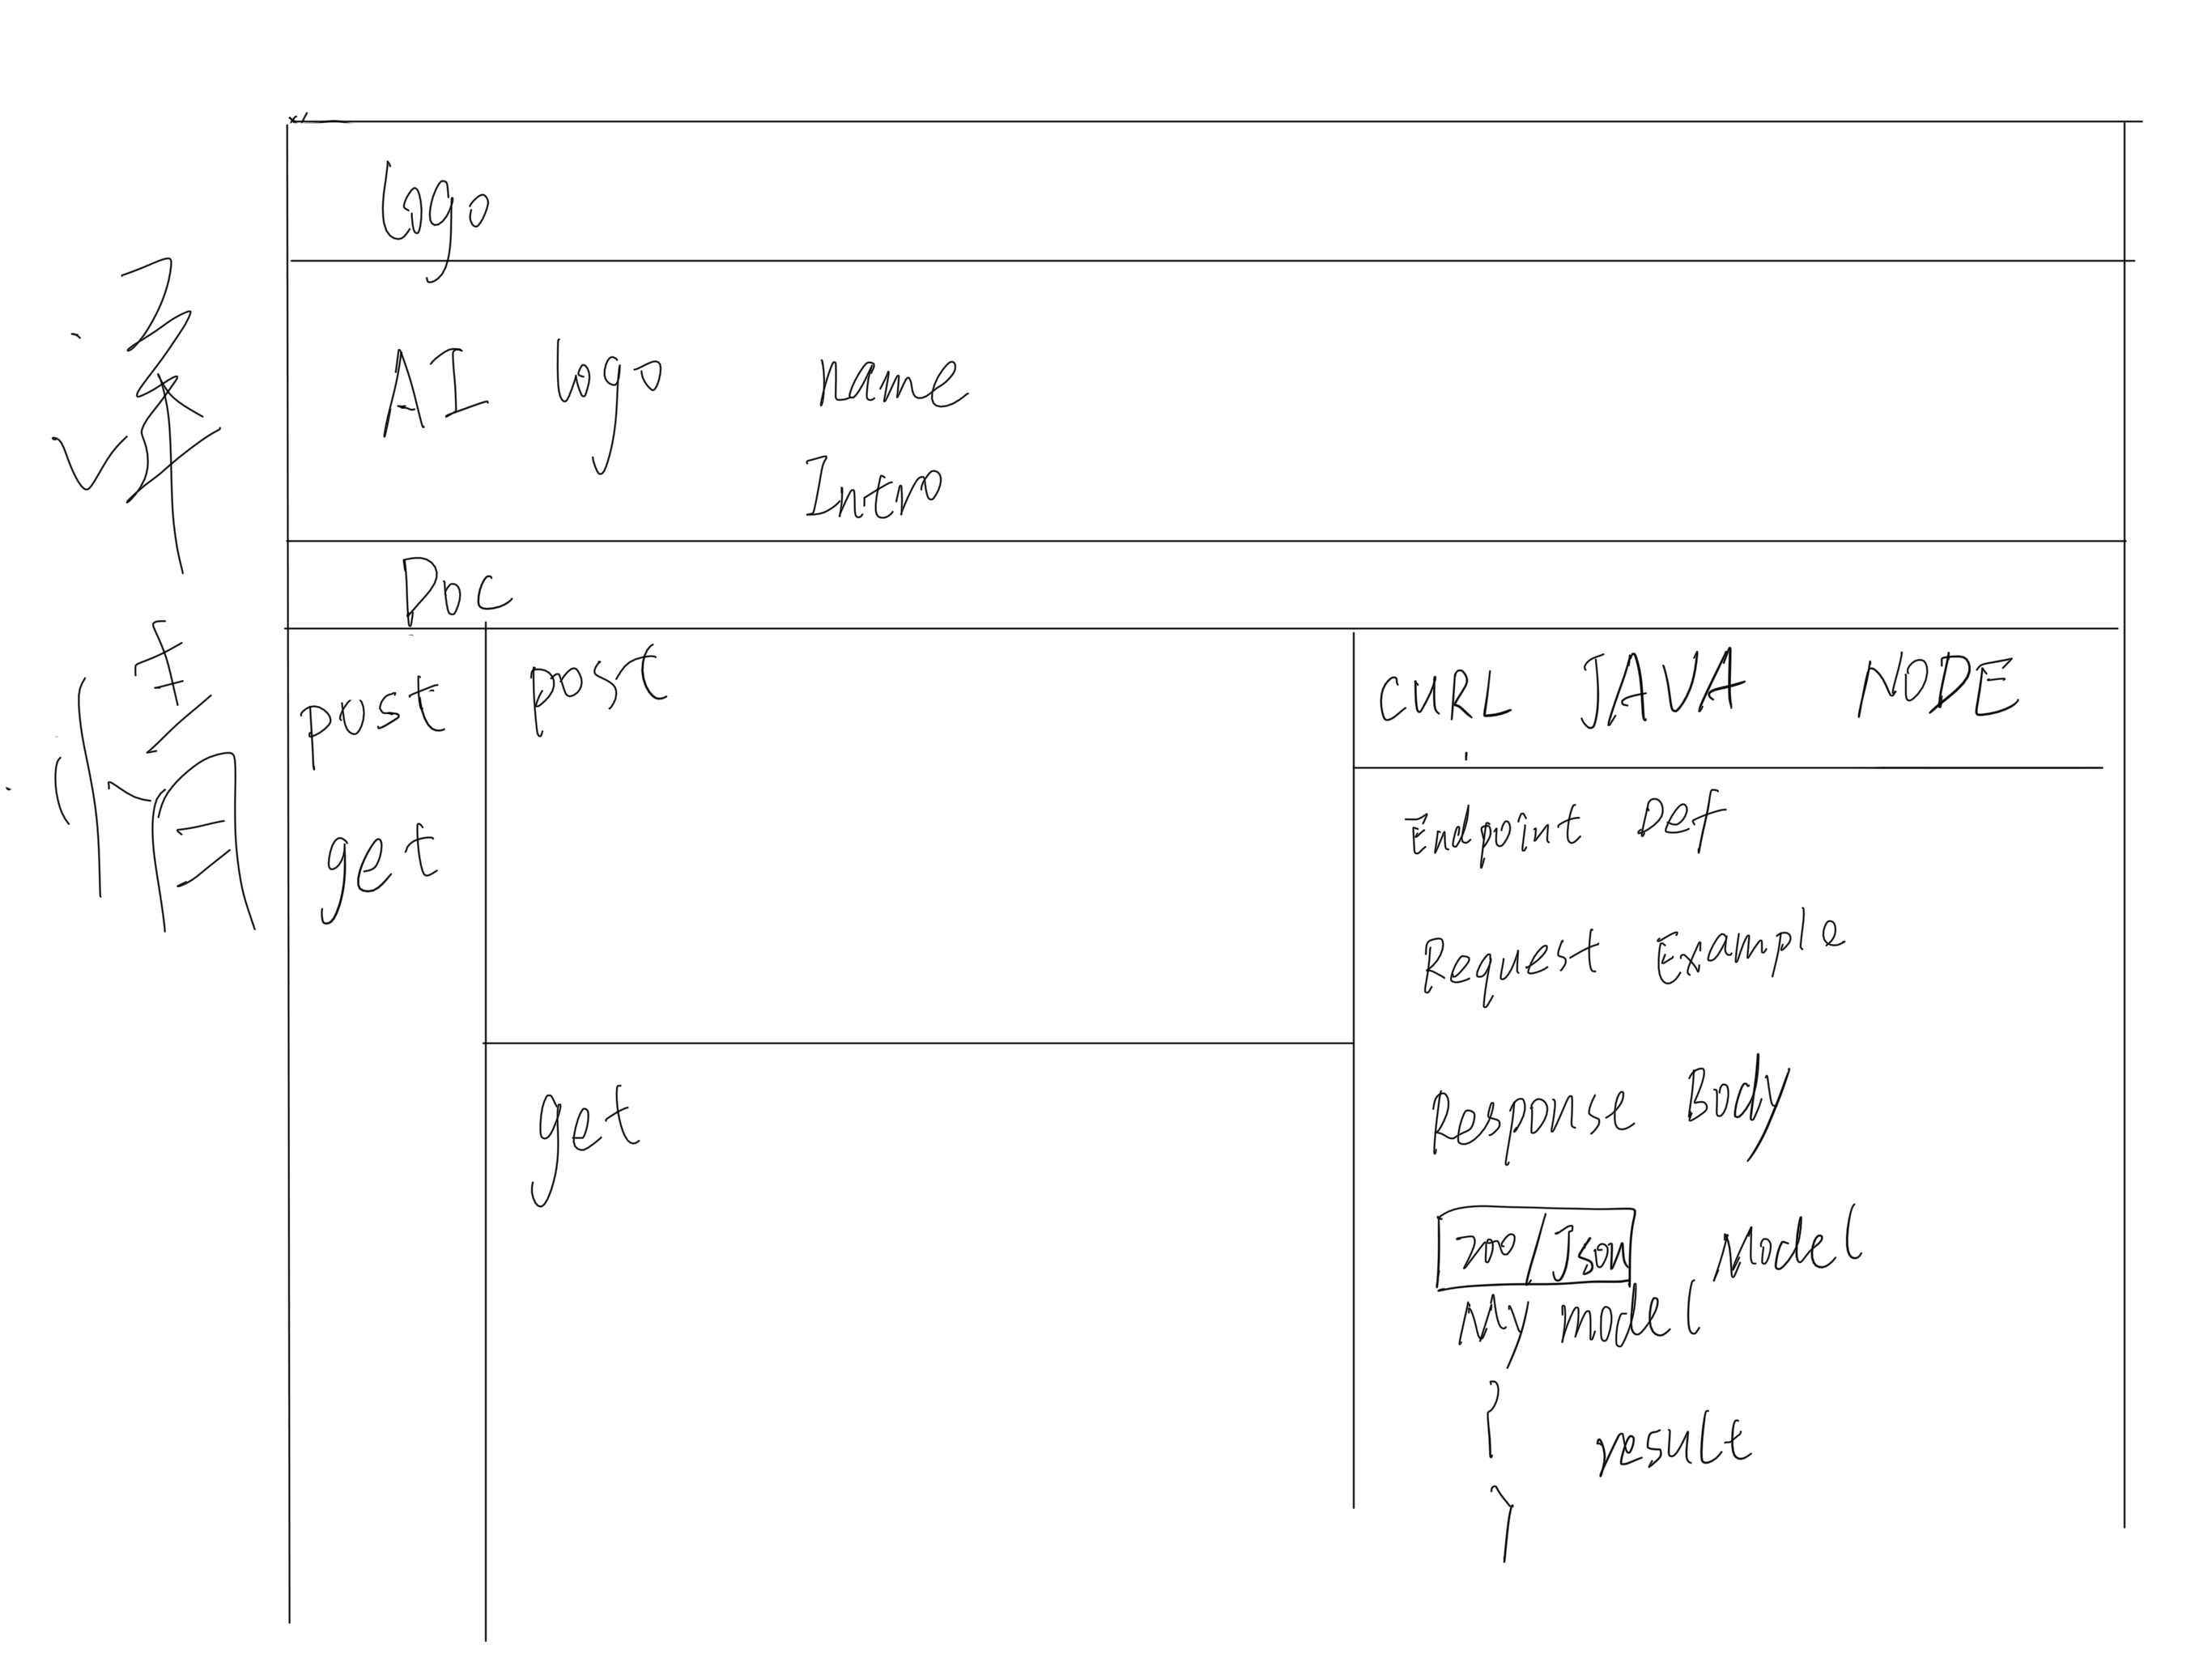 详情
Logo
AI logo name
Intro
Doc
post
get
post
get
CURL JAVA NODE
Endpoint Def
Request Example
Response Body
200/Json Model
My model
{
result
}